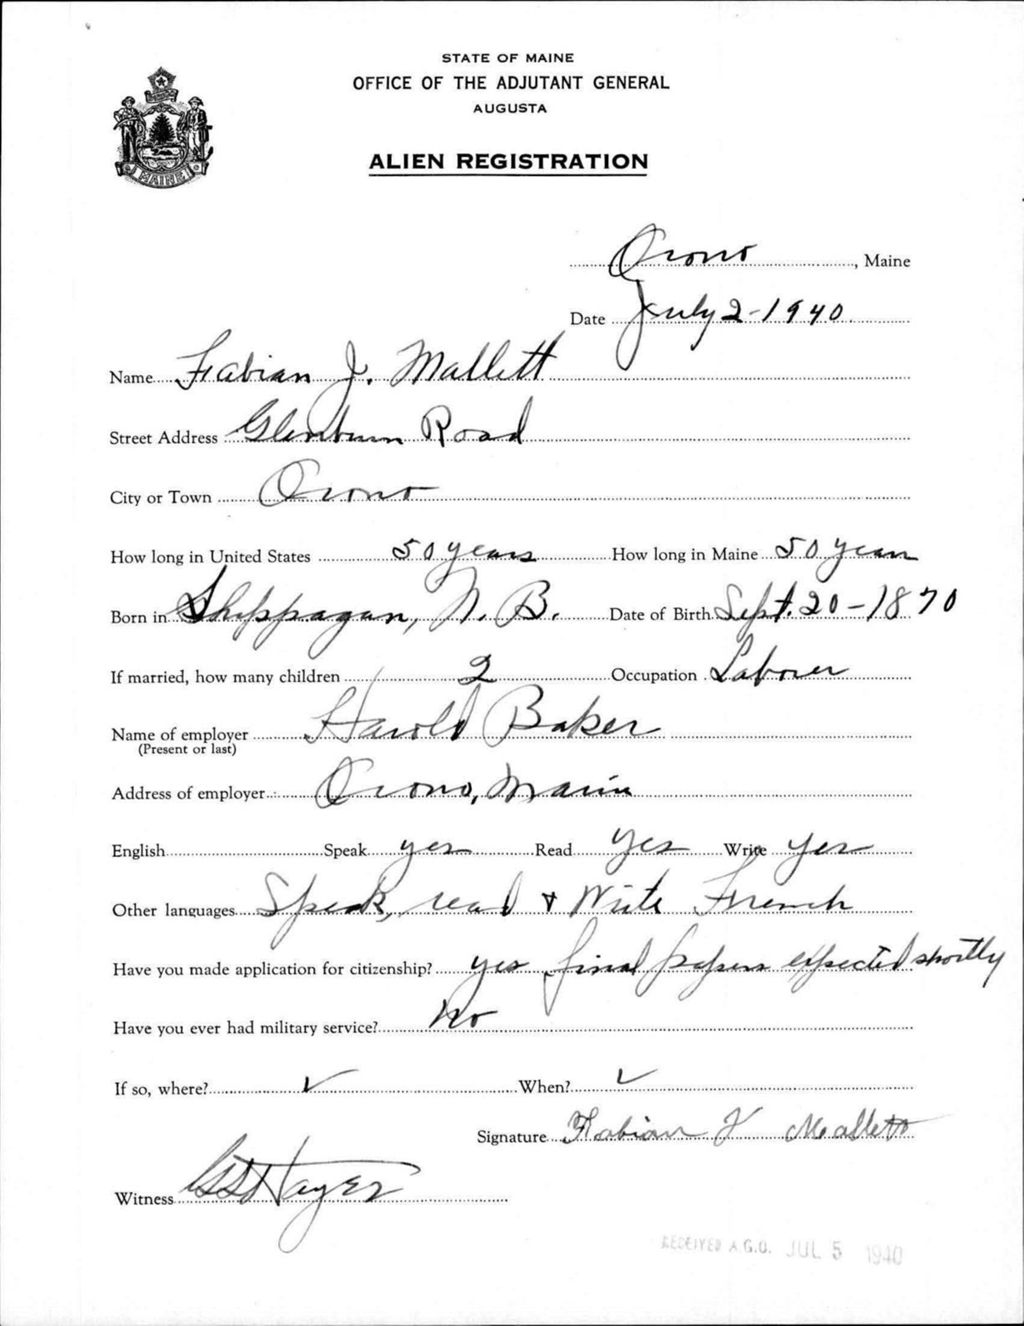 STATE OF MAINE
OFFICE OF THE ADJUTANT GENERAL
AUGUSTA
ALIEN REGISTRATION
MAINE
Orono, Maine
Date July 2-1940
Name Fabian J. Mallett
Street Address Glenburn Road
City or Town Orono
How long in United States 50 years How long in Maine 50 years
Born in Shippagan, N. B. Date of Birth Sept. 20-1870
If married, how many children 2 Occupation Laborer
Name of employer Harold Baker
(Present or last)
Address of employer Orono, Maine
English Speak yes Read yes Write yes
Other languages Speak, read & Write French
Have you made application for citizenship? yes final papers expected shortly
Have you ever had military service? No
If so, where? ✓ When? ✓
Signature Fabian J Mallett
Witness
RECEIVED A.G.O. JUL 5 1940